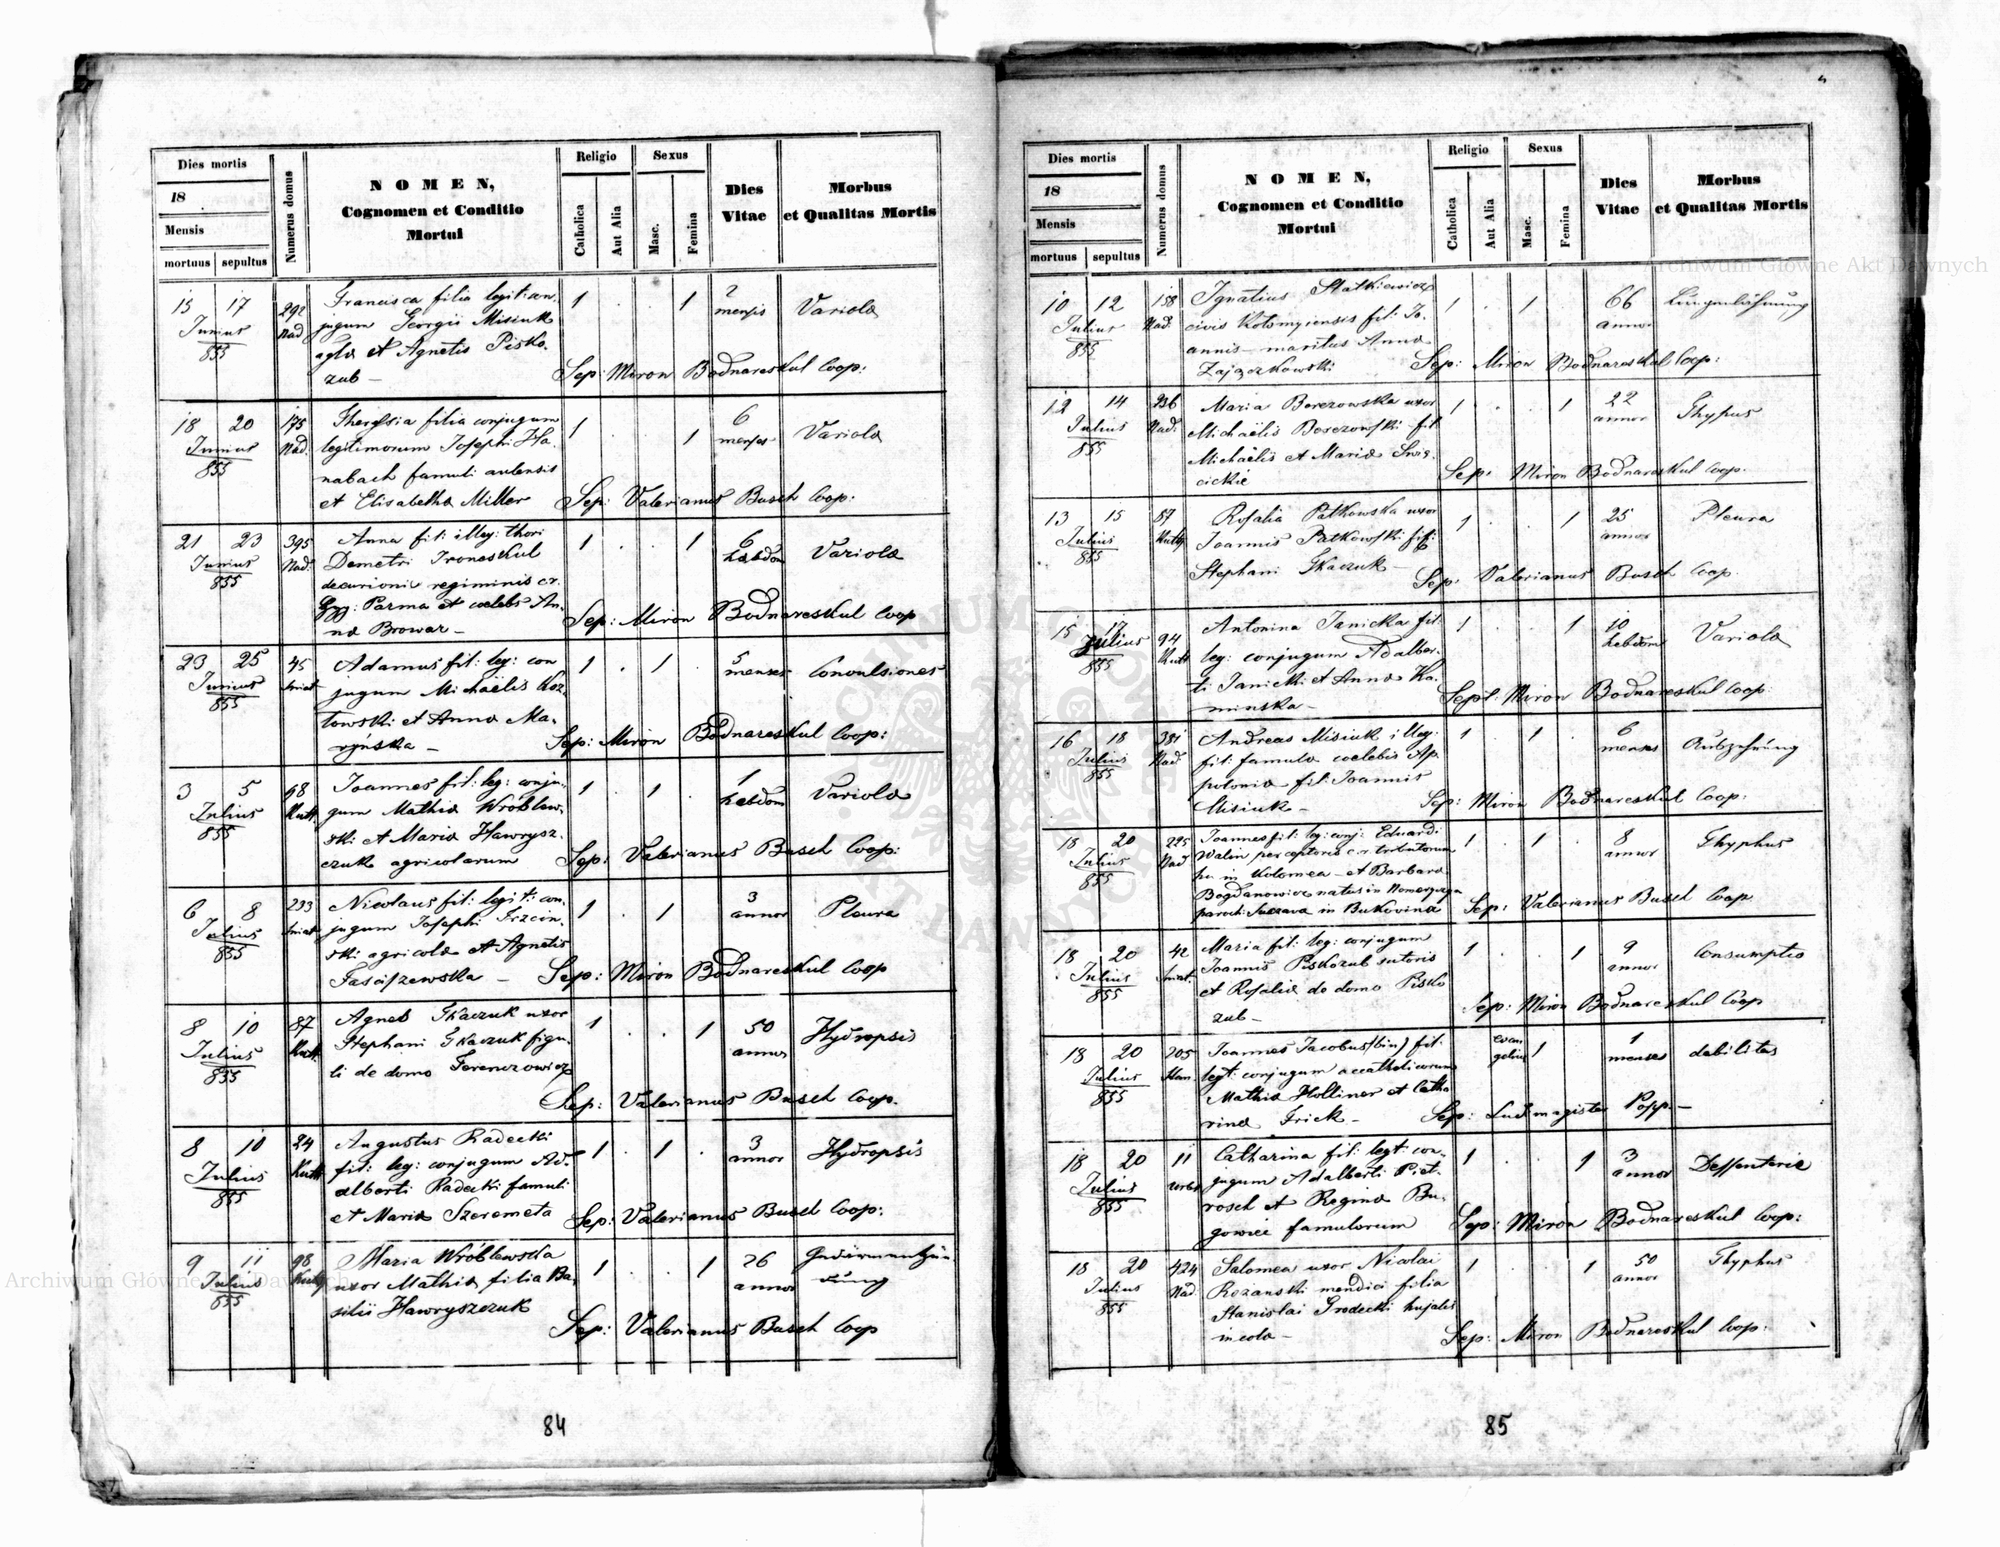 Dies mortis
18
Mensis
mortuus sepultus
Numerus domus
NOMEN,
Cognomen et Conditio
Mortui
Religio
Catholica
Aut Alia
Sexus
Masc.
Femina
Dies
Vitae
Morbus
et Qualitas Mortis
15 17 292 Francisca filia legit: con, 1 . . 1 2 Variola
Junius Nad. jugum Georgii Misiuk mensis
855 agla et Agnetis Pisko,
zub – Sep: Miron Bodnareskul Coop:
18 20 175 Theressia filia conjugum 1 . . 1 6 Variola
Junius Nad. legitimorum Josephi Ha, menses
855 nabach famuli aulensis
et Elisabetha Miller Sep: Valerianus Busch Coop:
21 23 395 Anna fil: illeg: thori 1 . . 1 6 Variola
Junius Nad. Demetri Ironeskul hebdom
855 decurioni regiminis cr.
Parma et coelebs An,
na Browar – Sep: Miron Bodnareskul Coop
23 25 45 Adamus fil: leg: con 1 . 1 . 5 Convulsiones
Junius Sniat jugum Michaëlis Koz, menses
855 lowski et Anna Ma,
ryńska – Sep: Miron Bodnareskul Coop:
3 5 98 Joannes fil: leg: conju, 1 . 1 . 1 Variola
Julius Kutt. gum Mathia Wróblew, hebdom
855 ski et Maria Hawrysz,
czuk agricolarum Sep: Valerianus Busch Coop:
6 8 233 Nicolaus fil: legit: con, 1 . 1 3 Pleura
Julius Sniat jugum Josephi Trzciń, annor
855 ski agricola et Agnetis
Sep: Miron Bodnareskul Coop
8 10 87 Agnes Tkaczuk uxor 1 . . 1 50 Hydropsis
Julius Kutt. Stephani Tkaczuk figu, annor
855 li de domo Terenczowicz
Sep: Valerianus Busch Coop.
8 10 24 Augustus Radecki 1 . 1 . 3 Hydropsis
Julius Kutt. fil: leg: conjugum Ad, annor
855 alberti Radecki famuli
et Maria Szeremeta Sep: Valerianus Busch Coop:
9 11 98 Maria Wróblewska 1 . . 1 26 Gedärmentzün,
Julius Kutty uxor Mathia filia Ba, annor dung
855 silii Hawryszczuk
Sep: Valerianus Busch Coop
84
Dies mortis
18
Mensis
mortuus sepultus
Numerus domus
NOMEN,
Cognomen et Conditio
Mortui
Religio
Catholica
Aut Alia
Sexus
Masc.
Femina
Dies
Vitae
Morbus
et Qualitas Mortis
10 12 158 Ignatius Statkiewicz 1 . 1 . 66 Lungenlähmung
Julius Nad. civis Kolomyiensis fil: Jo, annor
855 annis – maritus Anna
Zajączkowski Sep: Miron Bodnareskul Coop:
12 14 236 Maria Berezowska uxor 1 . . 1 22 Thypus
Julius Nad. Michaëlis Berezowski fil annor
855 Michaëlis et Maria Swię,
cickie Sep: Miron Bodnareskul Coop.
13 15 87 Rosalia Patkowska uxor 1 . . 1 25 Pleura
Julius Kutty Joannis Patkowski fil: annor
855 Stephani Tkaczuk – Sep: Valerianus Busch Coop.
15 17 94 Antonina Janicka fil: 1 . . 1 10 Variola
Julius Kutt leg: conjugum Adalber, hebdom
855 ti Janicki et Anna Ka,
minska – Sept: Miron Bodnareskul Coop:
16 18 381 Andreas Misiuk illeg: 1 . 1 . 6 Aubzehrung
Julius Nad. fil: famula coelebis Ap, menses
855 polonia fil: Joannis
Misiuk – Sep: Miron Bodnareskul Coop:
18 20 225 Joannes fil: leg: conj: Eduardi 1 . 1 . 8 Thyphus
Julius Nad Walin perceptoris c.r. tributorum annor
855 in Kolomea – et Barbara
Bogdanowicz natus in
paroch: Suczava in Bukovina Sep: Valerianus Busch Coop
18 20 42 Maria fil: leg: conjugum 1 . . 1 9 Consumptio
Julius Sniat. Joannis Piskozub sutoris annor
855 et Rosalia de domo Pisko
zub – Sep: Miron Bodnareskul Coop
18 20 205 Joannes Jacobus (bin) fil: evan 1 1 debilitas
Julius legt: conjugum accatholicorum gelius menses
855 Mathia Holliner et Catha
rina Frick – Sep: Ludimagister Popp. –
18 20 11 Catharina fil: legt: con, 1 . . 1 3 Dessenterie
Julius jugum Adalberti Piet, annor
855 rosch et Regina Bu,
gowiei famulorum Sep: Miron Bodnareskul Coop:
18 20 424 Salomea uxor Nicolai 1 . . 1 50 Thyphus
Julius Nad. Rozanski mendici filia annor
855 Stanislai Grodecki hujatis
incola – Sep: Miron Bodnareskul Coop:
85
Archiwum Główne Akt Dawnych
Archiwum Główne Akt Dawnych
ARCHIWUM GŁÓWNE AKT DAWNYCH